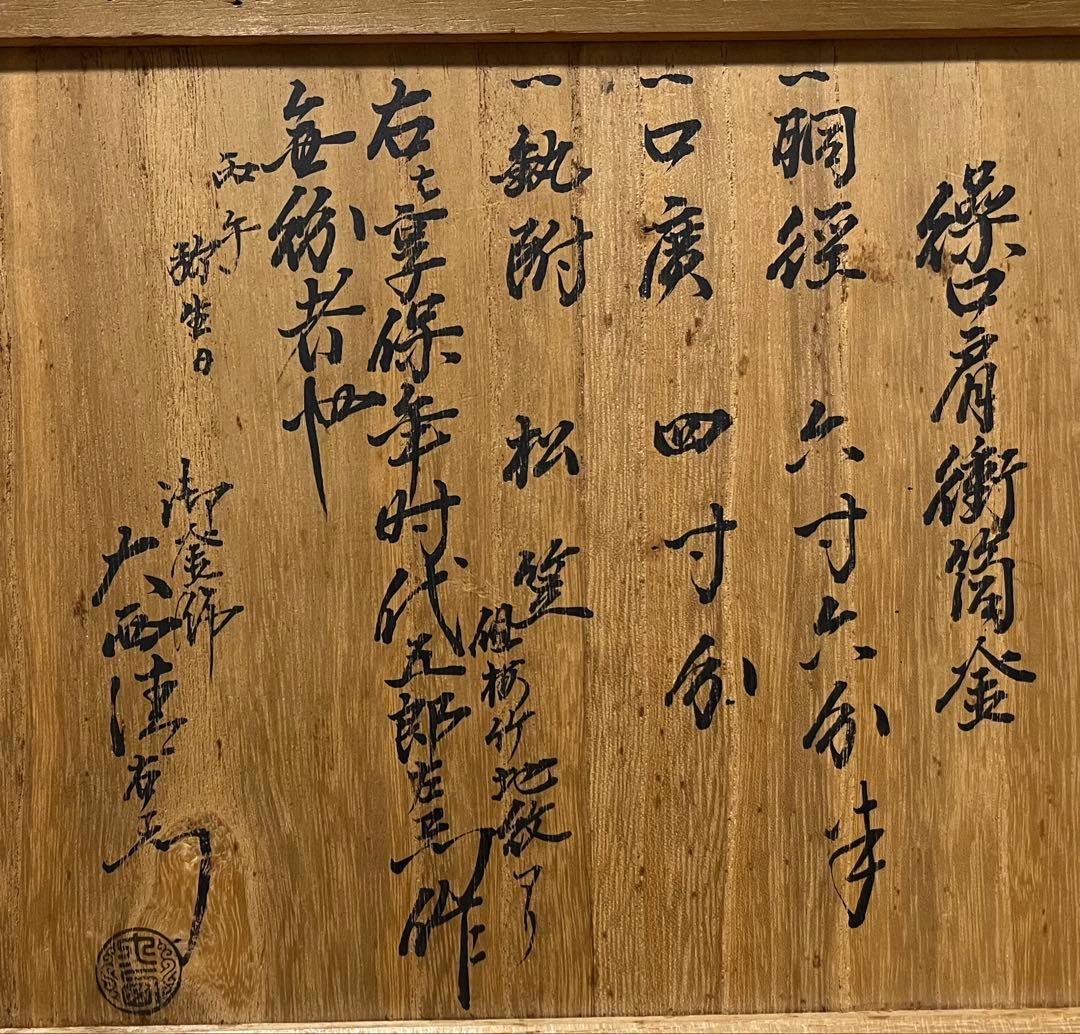 繰口肩衝筒釜
一胴径 六寸六分半
一口廣 四寸分
一執附 松笠
但梅竹地紋アリ
右ハ享保年时代五郎左エ門作ニ
無紛者也
丙午
弥生日
御釜師
大西清右エ門